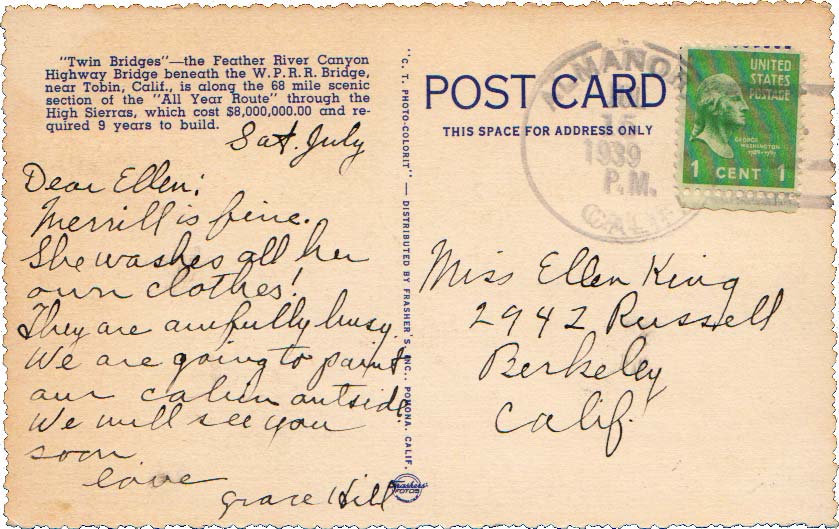 "Twin Bridges"—the Feather River Canyon
Highway Bridge beneath the W.P.R.R. Bridge,
near Tobin, Calif., is along the 68 mile scenic
section of the "All Year Route" through the
High Sierras, which cost $8,000,000.00 and re-
quired 9 years to build.
Sat. July
Dear Ellen:
Merrill is fine.
She washes all her
own clothes!
They are awfully busy.
We are going to paint
our cabin outside.
We will see you
soon
love
Grace Hill
"C. T. PHOTO-COLORIT" — DISTRIBUTED BY FRASHER'S INC., POMONA, CALIF.
Frashers
FOTOS
POST CARD
THIS SPACE FOR ADDRESS ONLY
ALMANOR
15
1939
P.M.
CALIF
UNITED
STATES
POSTAGE
GEORGE
WASHINGTON
1789-1797
1 CENT 1
Miss Ellen King
2942 Russell
Berkeley
Calif.